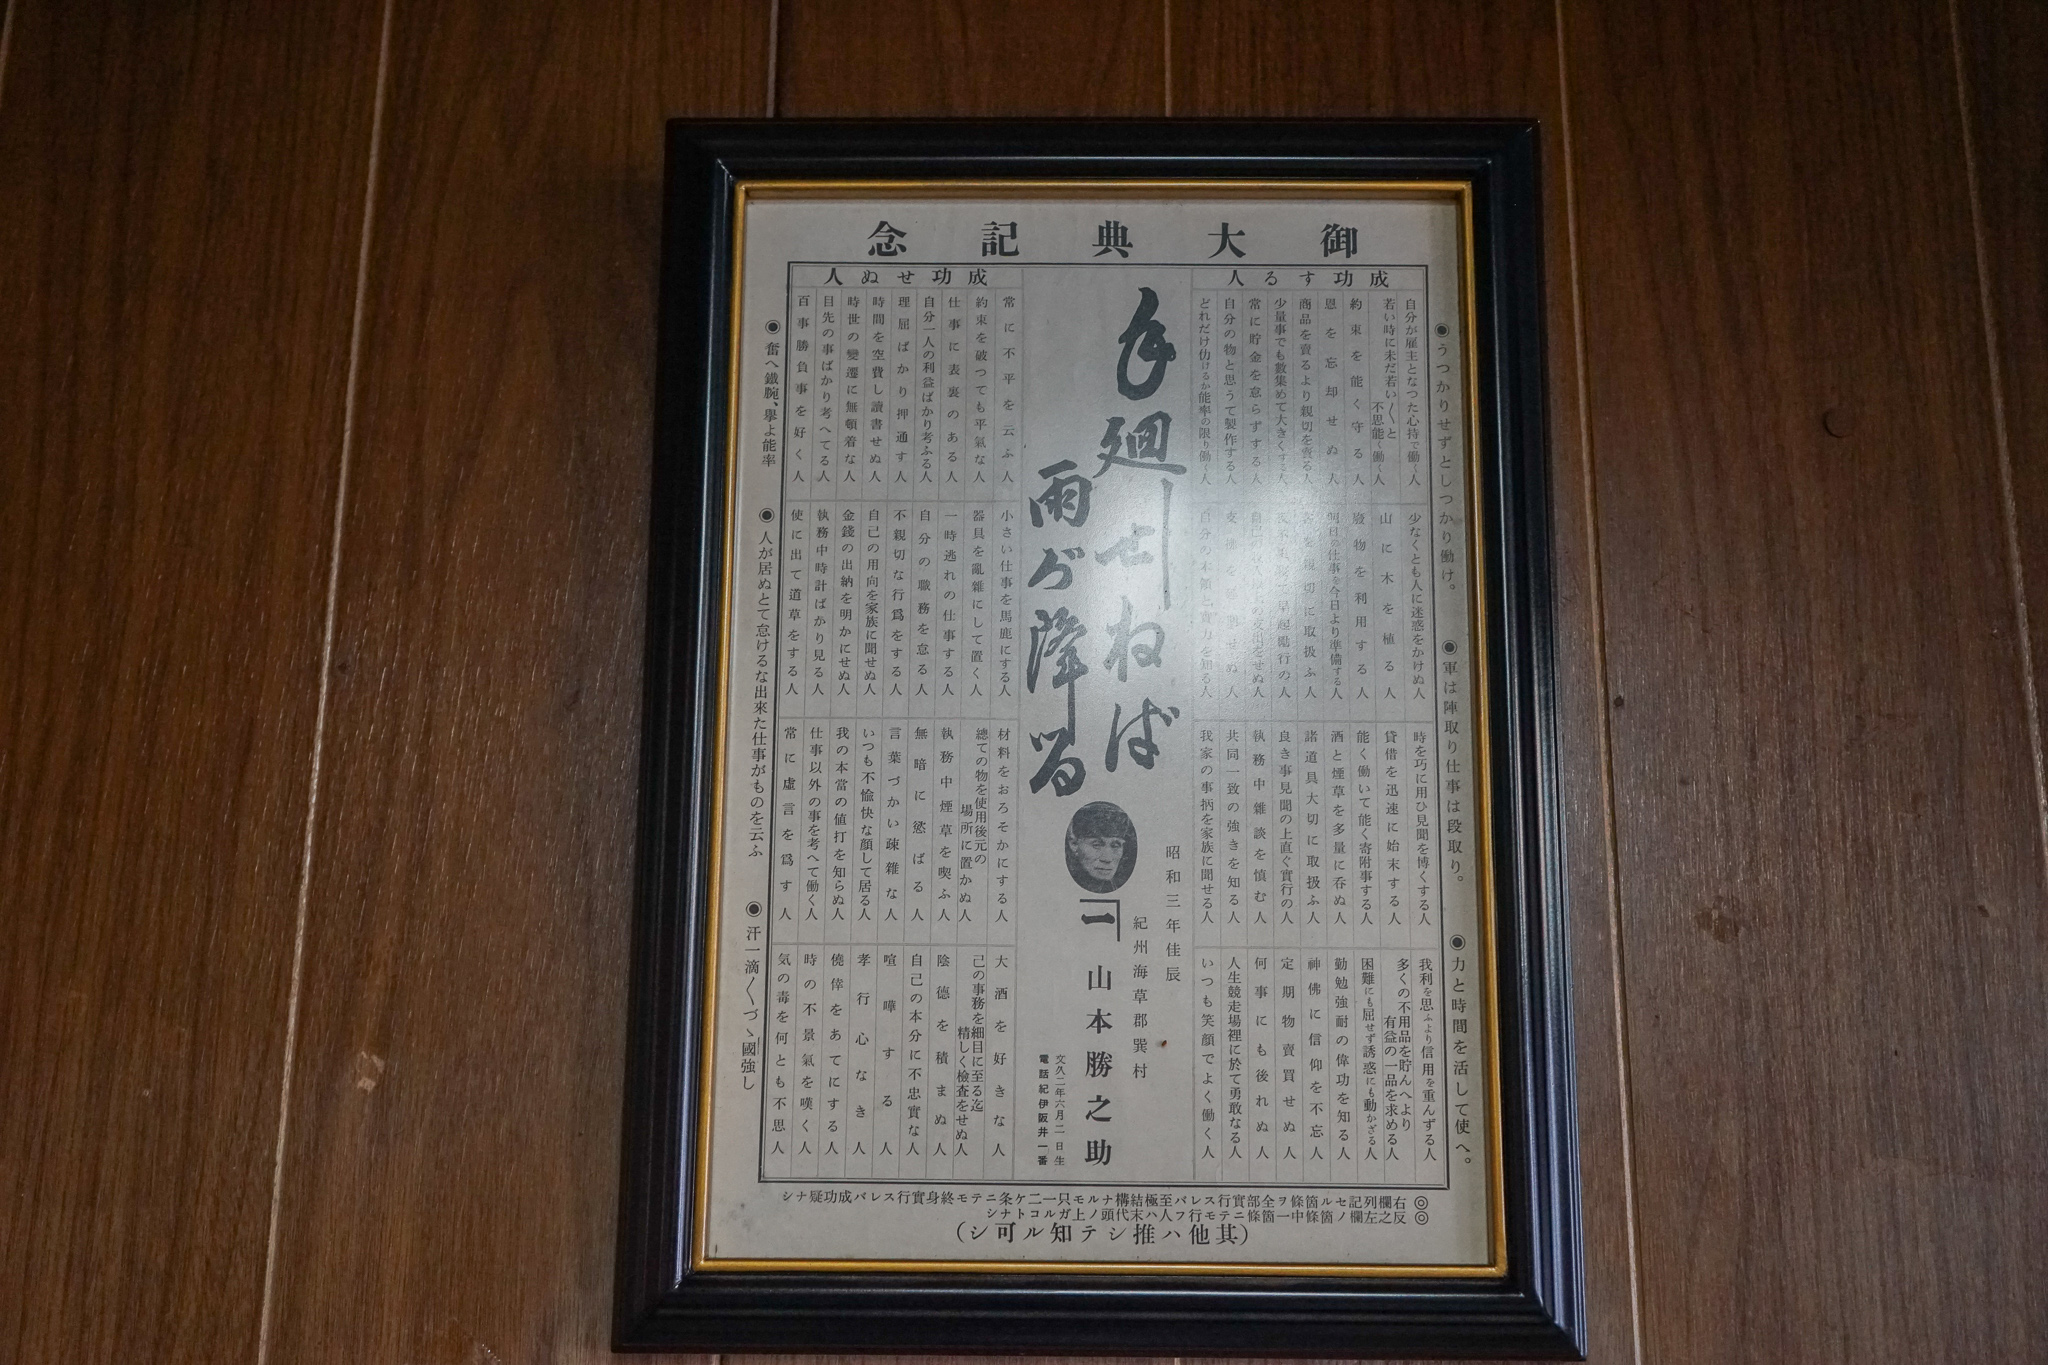 御大典記念
◉うつかりせずとしつかり働け。
◉軍は陣取り仕事は段取り。
◉力と時間を活して使へ。
成功する人
自分が雇主となつた心持で働く人
若い時に未だ若い〱と不思能く働く人
約束を能く守る人
恩を忘却せぬ人
商品を賣るより親切を賣る人
少量事でも數集めて大きくする人
常に貯金を怠らずする人
自分の物と思うて製作する人
どれだけ仂けるか能率の限り働く人
少なくとも人に迷惑をかけぬ人
山に木を植る人
廢物を利用する人
明日の仕事を今日より準備する人
親切に取扱ふ人
早起勵行の人
支拂を
自分の本領と實力を知る人
時を巧に用ひ見聞を博くする人
貸借を迅速に始末する人
能く働いて能く寄附事する人
酒と煙草を多量に呑ぬ人
諸道具大切に取扱ふ人
良き事見聞の上直ぐ實行の人
執務中雜談を愼む人
共同一致の強きを知る人
我家の事柄を家族に聞せる人
我利を思ふより信用を重んずる人
多くの不用品を貯んへより有益の一品を求める人
困難にも屈せず誘惑にも動かざる人
勤勉強耐の偉功を知る人
神佛に信仰を不忘人
定期物賣買せぬ人
何事にも後れぬ人
人生競走場裡に於て勇敢なる人
いつも笑顔でよく働く人
手廻しせねば
雨が降る
昭和三年佳辰
紀州海草郡巽村
山本勝之助
文久二年六月二日生
電話紀伊阪井一番
成功せぬ人
常に不平を云ふ人
約束を破つても平氣な人
仕事に表裏のある人
自分一人の利益ばかり考ふる人
理屈ばかり押通す人
時間を空費し讀書せぬ人
時世の變遷に無頓着な人
目先の事ばかり考へてる人
百事勝負事を好く人
小さい仕事を馬鹿にする人
器具を亂雜にして置く人
一時逃れの仕事する人
自分の職務を怠る人
不親切な行爲をする人
自己の用向を家族に聞せぬ人
金錢の出納を明かにせぬ人
執務中時計ばかり見る人
使に出て道草をする人
材料をおろそかにする人
總ての物を使用後元の場所に置かぬ人
執務中煙草を喫ふ人
無暗に慾ばる人
言葉づかい疎雜な人
いつも不愉快な顔して居る人
我の本當の値打を知らぬ人
仕事以外の事を考へて働く人
常に虛言を爲す人
大酒を好きな人
己の事務を細目に至る迄精しく檢査をせぬ人
陰德を積まぬ人
自己の本分に不忠實な人
喧嘩する人
孝行心なき人
僥倖をあてにする人
時の不景氣を嘆く人
気の毒を何とも不思人
◉奮へ鐵腕、擧よ能率
◉人が居ぬとて怠けるな出來た仕事がものを云ふ
◉汗一滴〱づゝ國強し
◎右欄列記セル箇條ヲ全部實行スレバ至極結構ナルモ只一二ケ条ニテモ終身實行スレバ成功疑ナシ
◎反之左欄ノ箇條中一箇條ニテモ行フ人ハ末代頭ノ上ガルコトナシ
（其他ハ推シテ知ル可シ）